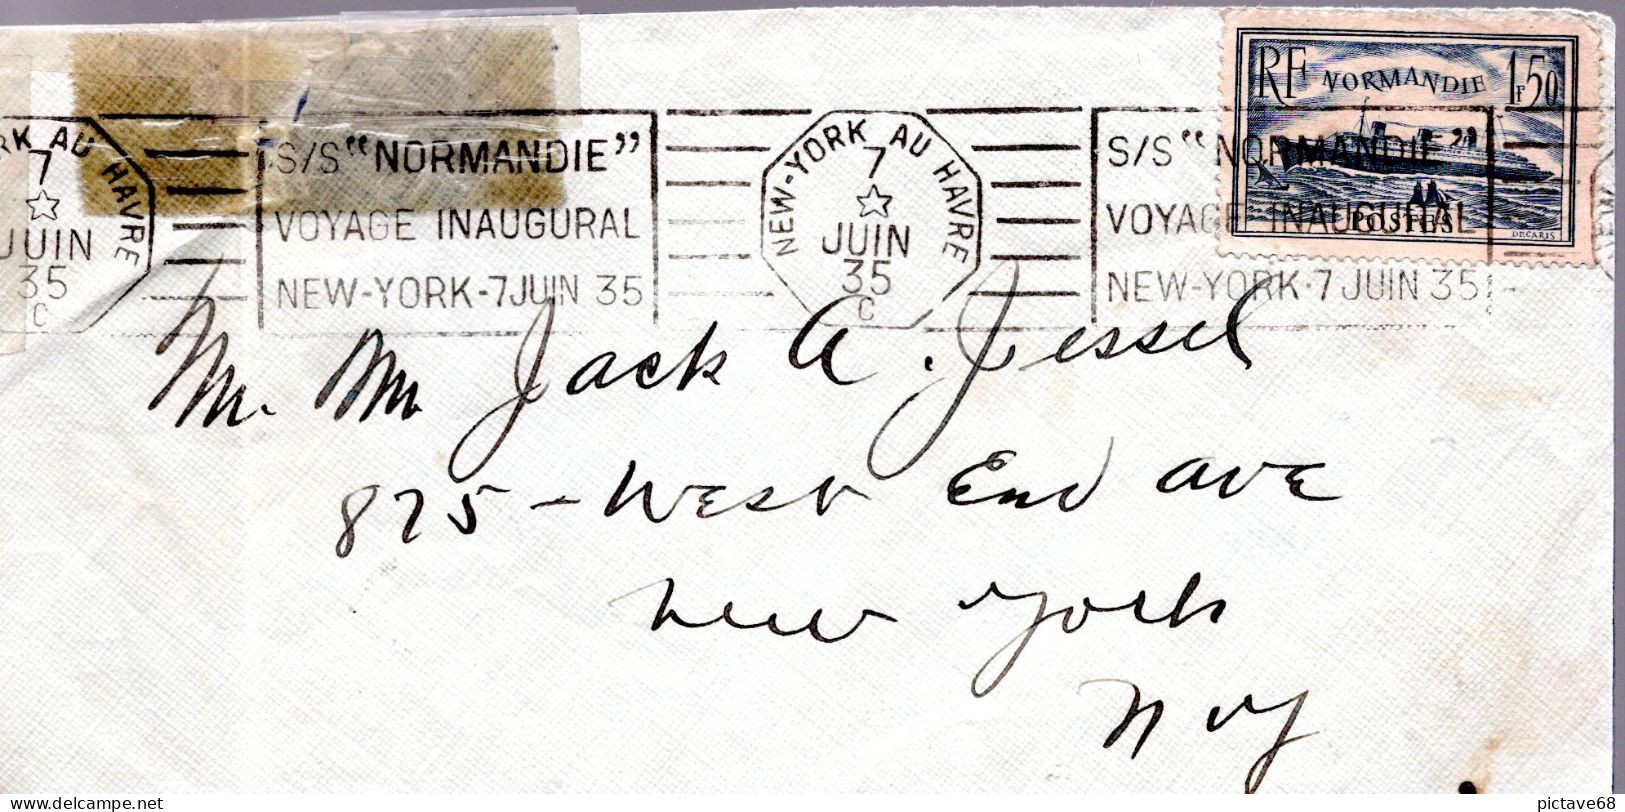 RF NORMANDIE 1F50
POSTES
DECARIS
RK AU HAVRE
7
JUIN
35
C
S/S "NORMANDIE"
VOYAGE INAUGURAL
NEW-YORK-7 JUIN 35
NEW-YORK AU HAVRE
7
JUIN
35
C
S/S "NORMANDIE"
VOYAGE INAUGURAL
NEW-YORK-7 JUIN 35
Mr. Mr. Jack A. Jessel
875 - West End Ave
New York
N Y
pictave68